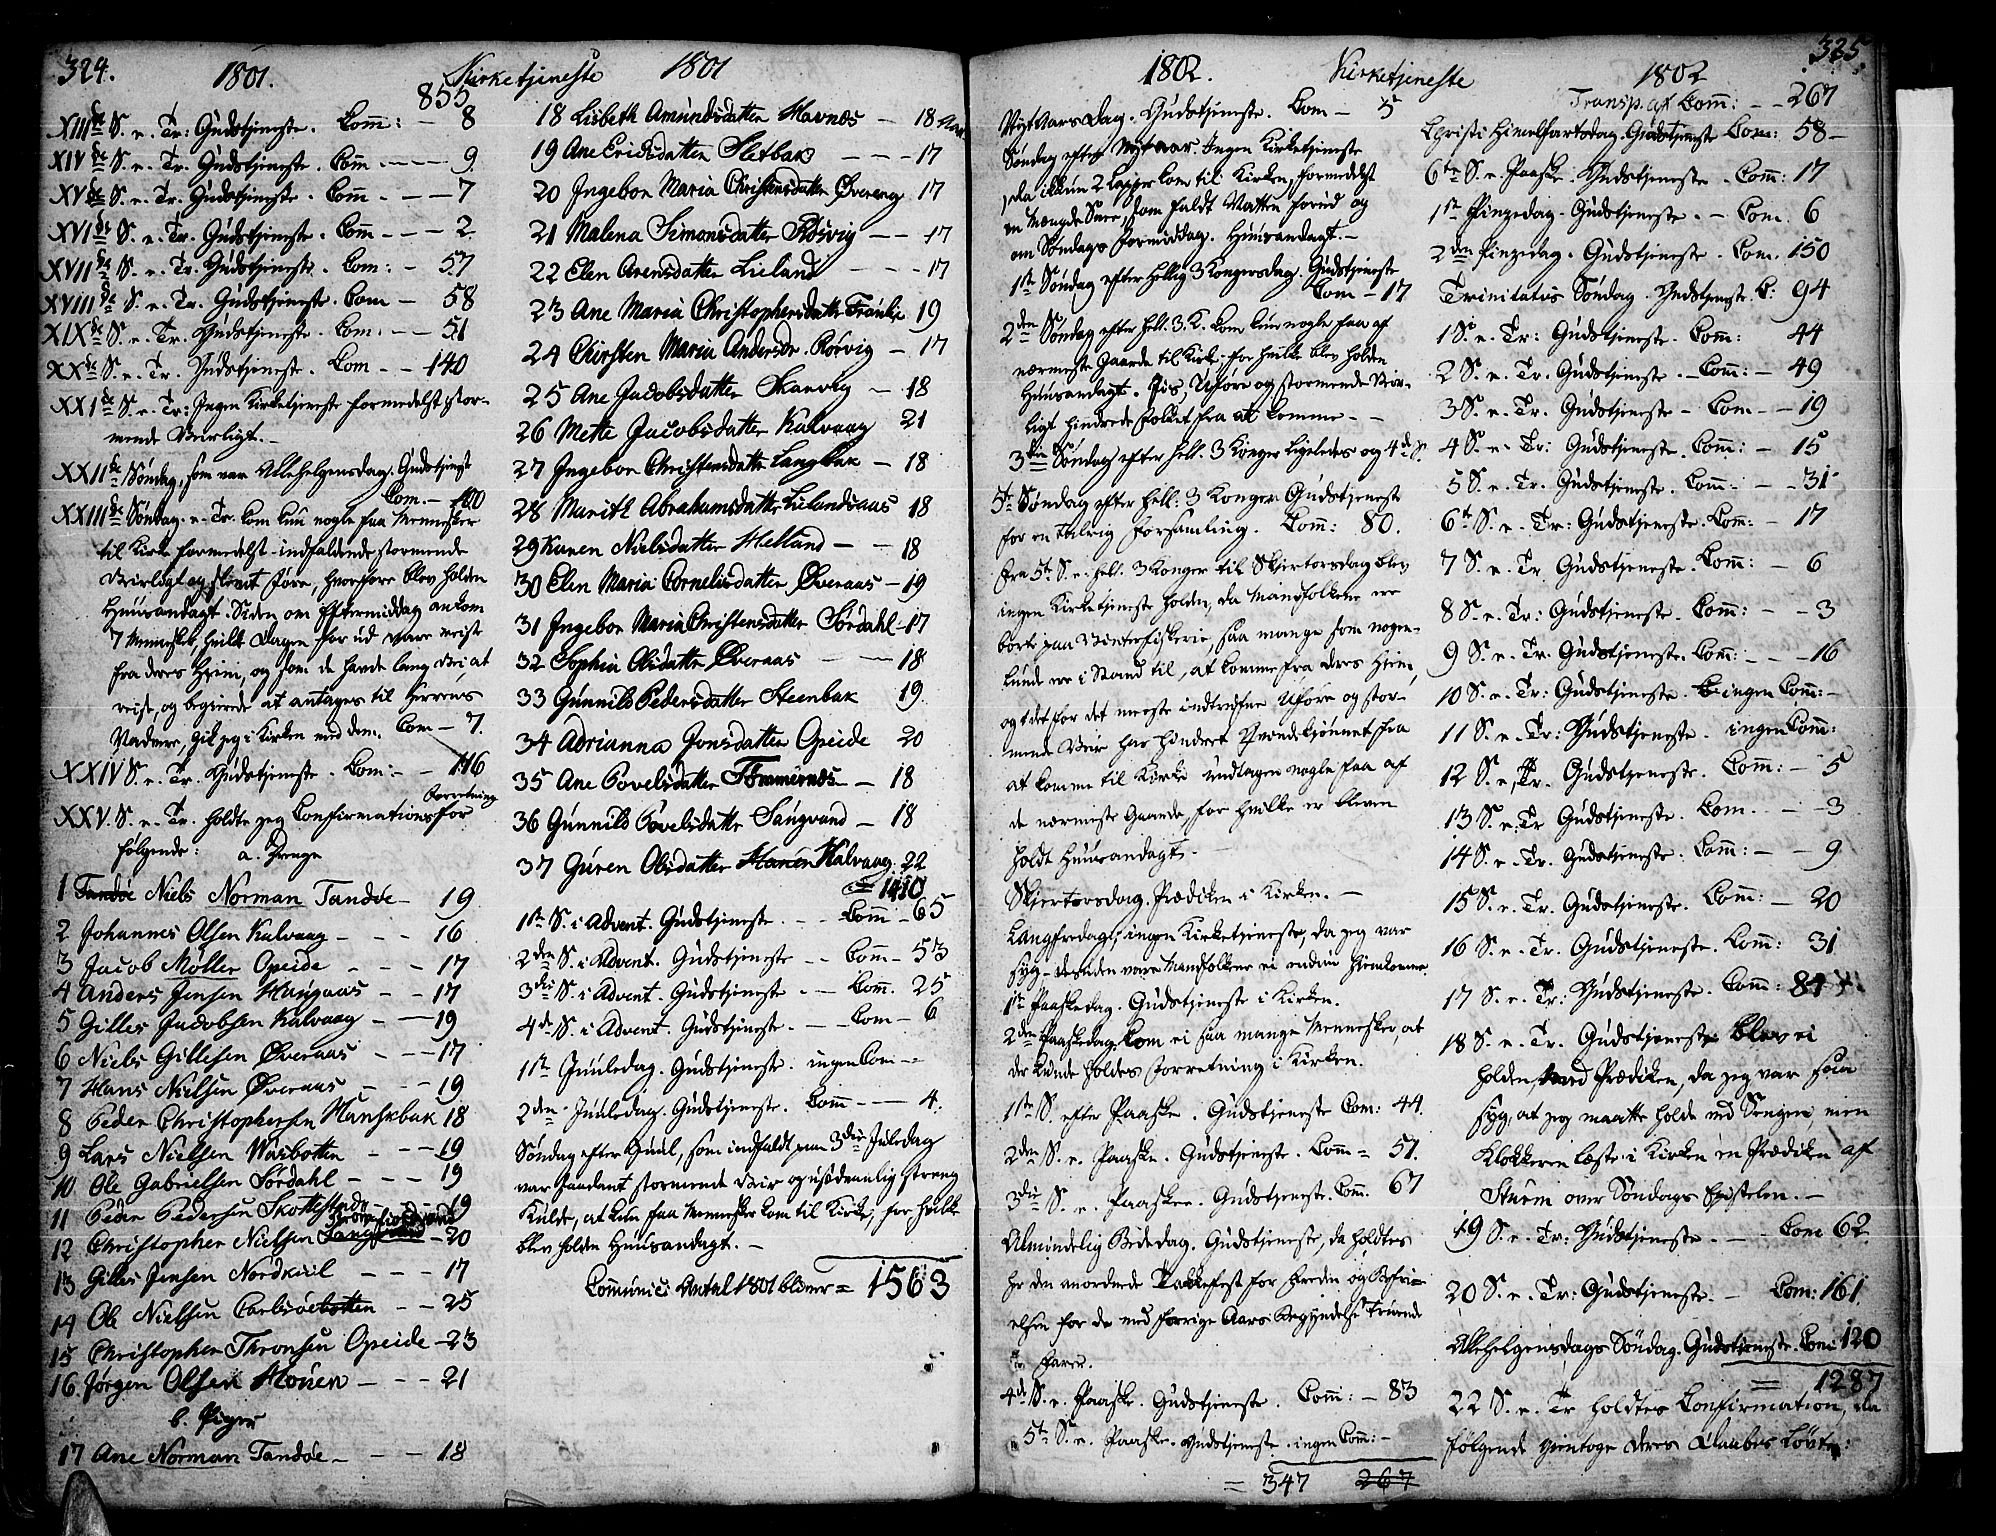 324.
1801. Kirketjeneste 1801
855
XIII de S. e. Tr: Gudstjeneste. Com: — 8
XIV de S. e. Tr. Gudstjeneste. Com — 9
XV de S. e. Tr. Gudstjeneste. Com. — 7
XVI de S. e. Tr. Gudstjeneste. Com — 2.
XVII de S. e. Tr. Gudstjeneste. Com: — 57
XVIII de S. e. Tr. Gudstjeneste. Com — 58
XIX de S. e. Tr. Gudstjeneste. Com: — 51
XX de S. e. Tr. Gudstjeneste. Com — 140
XXI de S. e. Tr: Ingen Kirketjeneste formedelst stor-
mende Veirligt. —
XXII de Søndag, som var Allehelgensdag. Gudstjenest
Com. — 100
XXIII de Søndag. e. Tr. kom kun nogle faa Mennesker
til Kirke formedelst indfaldende stormende
Veirligt og slemt føre, hvorfore blev holden
Huusandagt. Siden om Eftermiddag ankom
7 Mennesker, hvilke Dagen for ud vare reist
fra deres Hjem, og som de havde lang Vei, at
reise, og begierede at antages til Herrens
Nadvere, gik jeg i Kirken med dem. Com — 7.
XXIV S. e. Tr. Gudstjeneste. Com: — 116
XXV. S. e. Tr. holdte jeg Confirmations forretning for
følgende: a. Drenge
1 Tandøe Niels Norman Tandøe — 19.
2 Johannes Olsen Kalvaag — 16
3 Jacob Møller Opeide — 17
4 Anders Jensen Haugaas — 17
5 Gilles Jacobsen Kalvaag — 19
6 Niels Gillesen Øveraas — 17
7 Hans Nielsen Øveraas — 19
8 Peder Christophersen Manskbak 18
9 Lars Nielsen Wasbotten — 19
10 Ole Gabrielsen Sørdahl — 19
11 Peder Pedersen Skottestad — 19
12 Christopher Nielsen — 20
13 Gilles Jensen Nordkiil — 17
14 Ole Nielsen Carlsøebotten — 25
15 Christopher Thronsen Opeide — 23
16 Jørgen Olsen Monen — 21
b. Piger
17 Ane Norman Tandøe — 18
18 Lisbeth Amundsdatter Havnæs — 18
19 Ane Ericksdatter Sletbak — 17
20 Ingebor Maria Christensdatter Øvereng 17
21 Malena Simonsdatter Rørvig — 17
22 Elen Arensdatter Lieland — 17
23 Ane Maria Christophersdatter 19
24 Chirsten Maria Andersdr. Rørvig — 17
25 Ane Jacobsdatter Skarvig — 18
26 Mette Jacobsdatter Kalvaag 21
27 Ingebor Christensdatter Langbak — 18
28 Marith Abrahamsdatter Lielandsaas 18
29 Karen Nielsdatter Helland — 18
30 Elen Maria Cornelisdatter Øveraas — 19
31 Ingebor Maria Christensdatter Sørdahl — 17
32 Sophia Olsdatter Øveraas — 18
33 Gunnild Pedersdatter Steenbak 19
34 Adrianna Jonsdatter Opeide 20
35 Ane Povelsdatter Tømmernæs — 18
36 Gunnild Povelsdatter Sangvand — 18
37 Guren Olsdatter Kalvaag. 22
= 1410
1ste S. i Advent. Gudstjeneste. — Com — 65
2den S. i Advent. Gudstjeneste — Com — 53
3die S. i Advent. Gudstjeneste. — Com. 25
4de S. i Advent. Gudstjeneste. — Com — 6
1ste Juuledag. Gudstjeneste. ingen Com —
2den Juuledag. Gudstjeneste. Com — 4.
Søndag efter Juul, som indfaldt paa 3die Juledag
var saadant stormende Veir og usædvanlig streng
Kulde, at kun faa Mennesker kom til Kirke, for hvilke
blev holden Huusandagt. —
Communic: Antal 1801 bliver = 1563
325.
1802. Kirketjeneste 1802
Nyt Aars Dag. Gudstjeneste. Com — 5
Søndag efter Nyt aar. Ingen Kirketjeneste
da ikkun 2 Lapper kom til Kirken, formedelst
en Mængde Snee, som faldt Natten forud og
om Søndags formiddag. Huusandagt. —
1ste Søndag efter Hellig 3 Kongersdag. Gudstjeneste
Com — 17
2den Søndag efter Hell. 3. K. kom kun nogle faa af
nærmeste Gaarde til Kirke for hvilke blev holden
Huusandagt. Iis, Uføre og stormende Veir-
ligt hindrede folket fra at komme. —
3die Søndag efter Hell. 3 Konger ligeledes og 4de S.
5te Søndag efter Hell. 3 Konger Gudstjeneste
for en talrig forsamling. Com: 80.
Fra 5te S. e. Hell. 3 Konger til Skjertorsdag blev
ingen Kirketjeneste holden, da Mandfolkene ere
borte paa Vinterfiskerie, saa mange som nogen-
lunde ere i Stand til, at komme fra deres Hjem,
og det for det meeste indtrufne Uføre og stor-
mende Veir har hindret Qvindekjønnet fra
at komme til Kirke undtagen nogle faa af
de nærmeste Gaarde, for hvilke er bleven
holdt Huusandagt. —
Skjertorsdag. Prædiken i Kirken. —
Langfredag, ingen Kirketjeneste, da jeg var
syg — desuden vare Mandfolkene ei endnu hjemkomne.
1ste Paaskedag. Gudstjeneste i Kirken.
2den Paaskedag. kom ei saa mange Mennesker, at
der kunde holdes forretning i Kirken.
1ste S. efter Paaske. Gudstjeneste Com: 44.
2den S. e. Paaske. Gudstjeneste. Com = 51.
3die S. e. Paaske. Gudstjeneste. Com. 67
Almindelig Bededag. Gudstjeneste, da holdtes
her den anordnede Takkefest for freden og Befri-
elsen for de med forrige Aars Begyndelse truende
Farer.
4de S. e. Paaske. Gudstjeneste. Com: — 83
5te S. e. Paaske. Gudstjeneste. ingen Com: —
= 347 267
Transp. af Com: — 267
Christi Himmelfartsdag. Gudstjeneste Com: 58 —
6te S. e. Paaske. Gudstjeneste. Com: 17
1ste Pinzedag. Gudstjeneste. — Com. 6
2den Pinzedag. Gudstjeneste. Com. 150
Trinitatis Søndag. Gudstjeneste. C: 94
1 S. e. Tr: Gudstjeneste. Com: 44
2 S. e. Tr. Gudstjeneste. — Com: — 49
3 S. e. Tr. Gudstjeneste — Com — 19
4 S. e. Tr: Gudstjeneste. Com: — 15
5 S. e. Tr. Gudstjeneste. Com: — 31
6te S. e. Tr: Gudstjeneste. Com: — 17
7 S. e. Tr Gudstjeneste. Com: — 6
8 S. e. Tr: Gudstjeneste. Com: — 3
9 S. e. Tr. Gudstjeneste. Com: — 16
10 S. e. Tr: Gudstjeneste. ingen Com: —
11 S. e. Tr: Gudstjeneste. ingen Com:
12 S. e. Tr. Gudstjeneste. Com: — 5
13 S. e. Tr Gudstjeneste. Com. — 3
14 S. e. Tr. Gudstjeneste. Com: — 9
15 S. e. Tr. Gudstjeneste. Com: — 20
16 S. e. Tr. Gudstjeneste. Com: 31
17 S. e. Tr: Gudstjeneste. Com: 84
18 S. e. Tr. Gudstjeneste blev ei
holden med Prædiken, da jeg var saa
syg, at jeg maatte holde ved Sengen, men
Klokkeren læste i Kirken en Prædiken af
Sturm over Søndags Epistelen. —
19 S. e. Tr: Gudstjeneste. — Com 62.
20 S. e. Tr: Gudstjeneste. — Com: 161.
Allehelgensdags Søndag. Gudstjeneste. Com: 120
= 1287
22 S. e. Tr holdtes Confirmation, da
følgende igientoge deres Daabes Løvte: